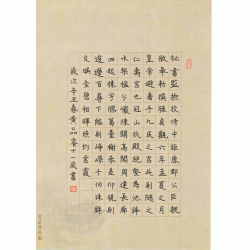 秘書監檢校侍中鉅鹿郡公臣魏
徵奉勅撰維貞觀六年孟夏之月
皇帝避暑乎九成之宮此則隋之
仁壽宮也冠山抗殿絕壑為池跨
水架楹分巖竦闕高閣周建長廊
四起棟宇膠葛臺榭參差仰視則
迢遰百尋下臨則崢嶸千仞珠璧
交暎金碧相暉照灼雲霞
歲次辛丑春黃品睿十一歲書